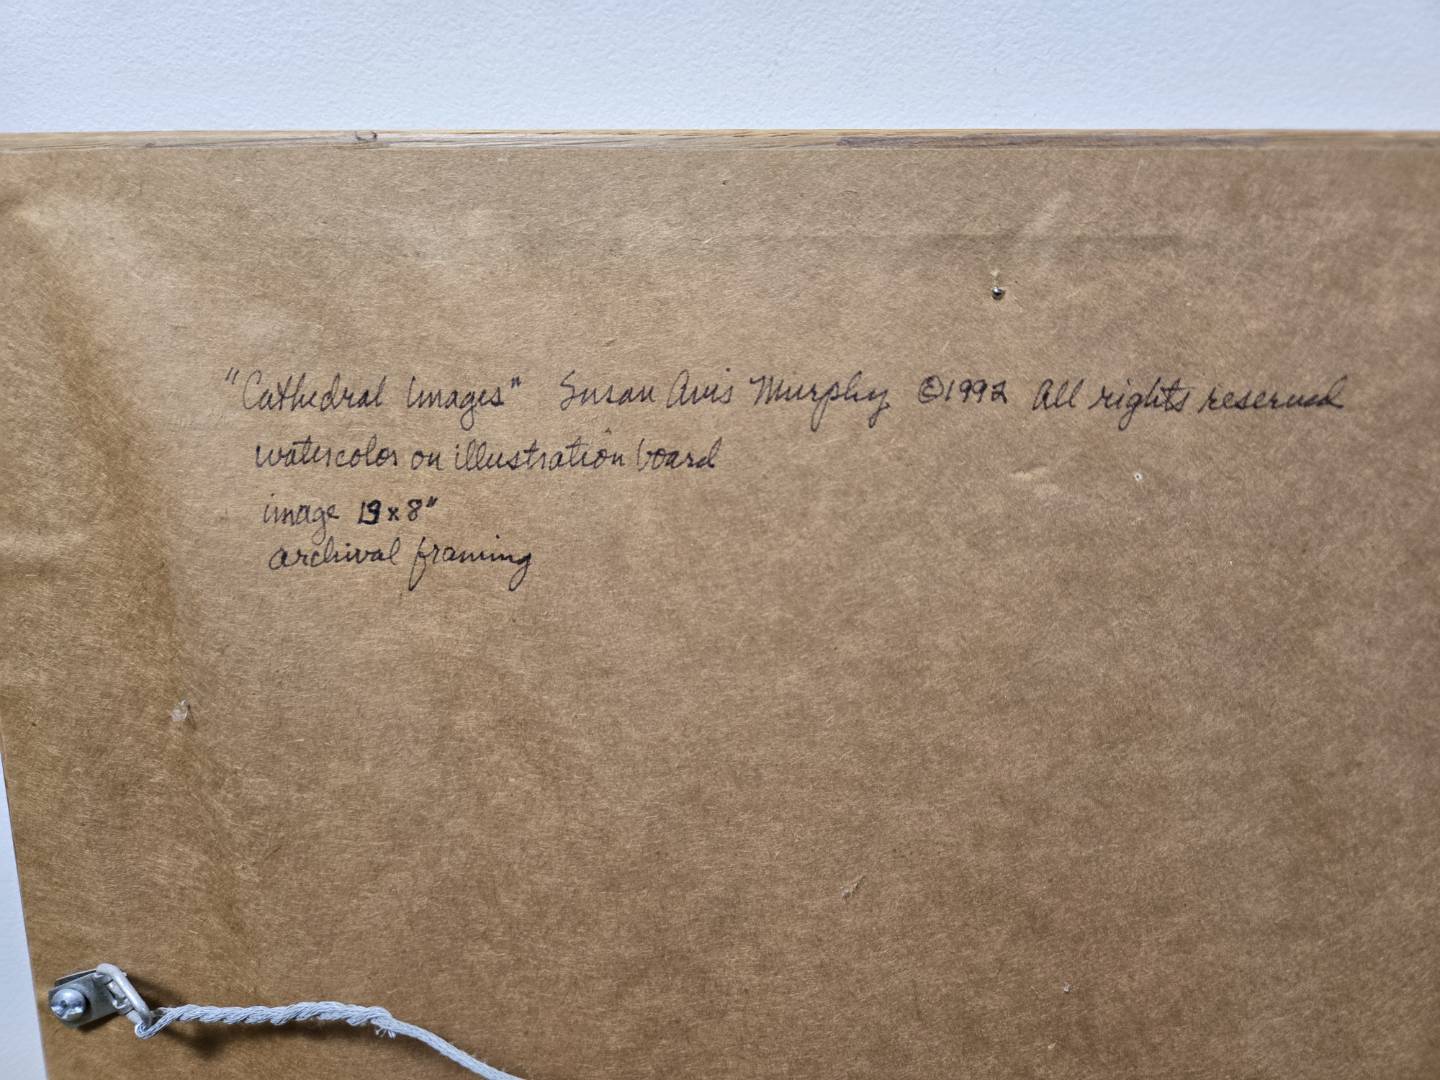 "Cathedral Images" Susan Avis Murphy ©1992 All rights reserved
watercolor on illustration board
image 19 x 8"
archival framing